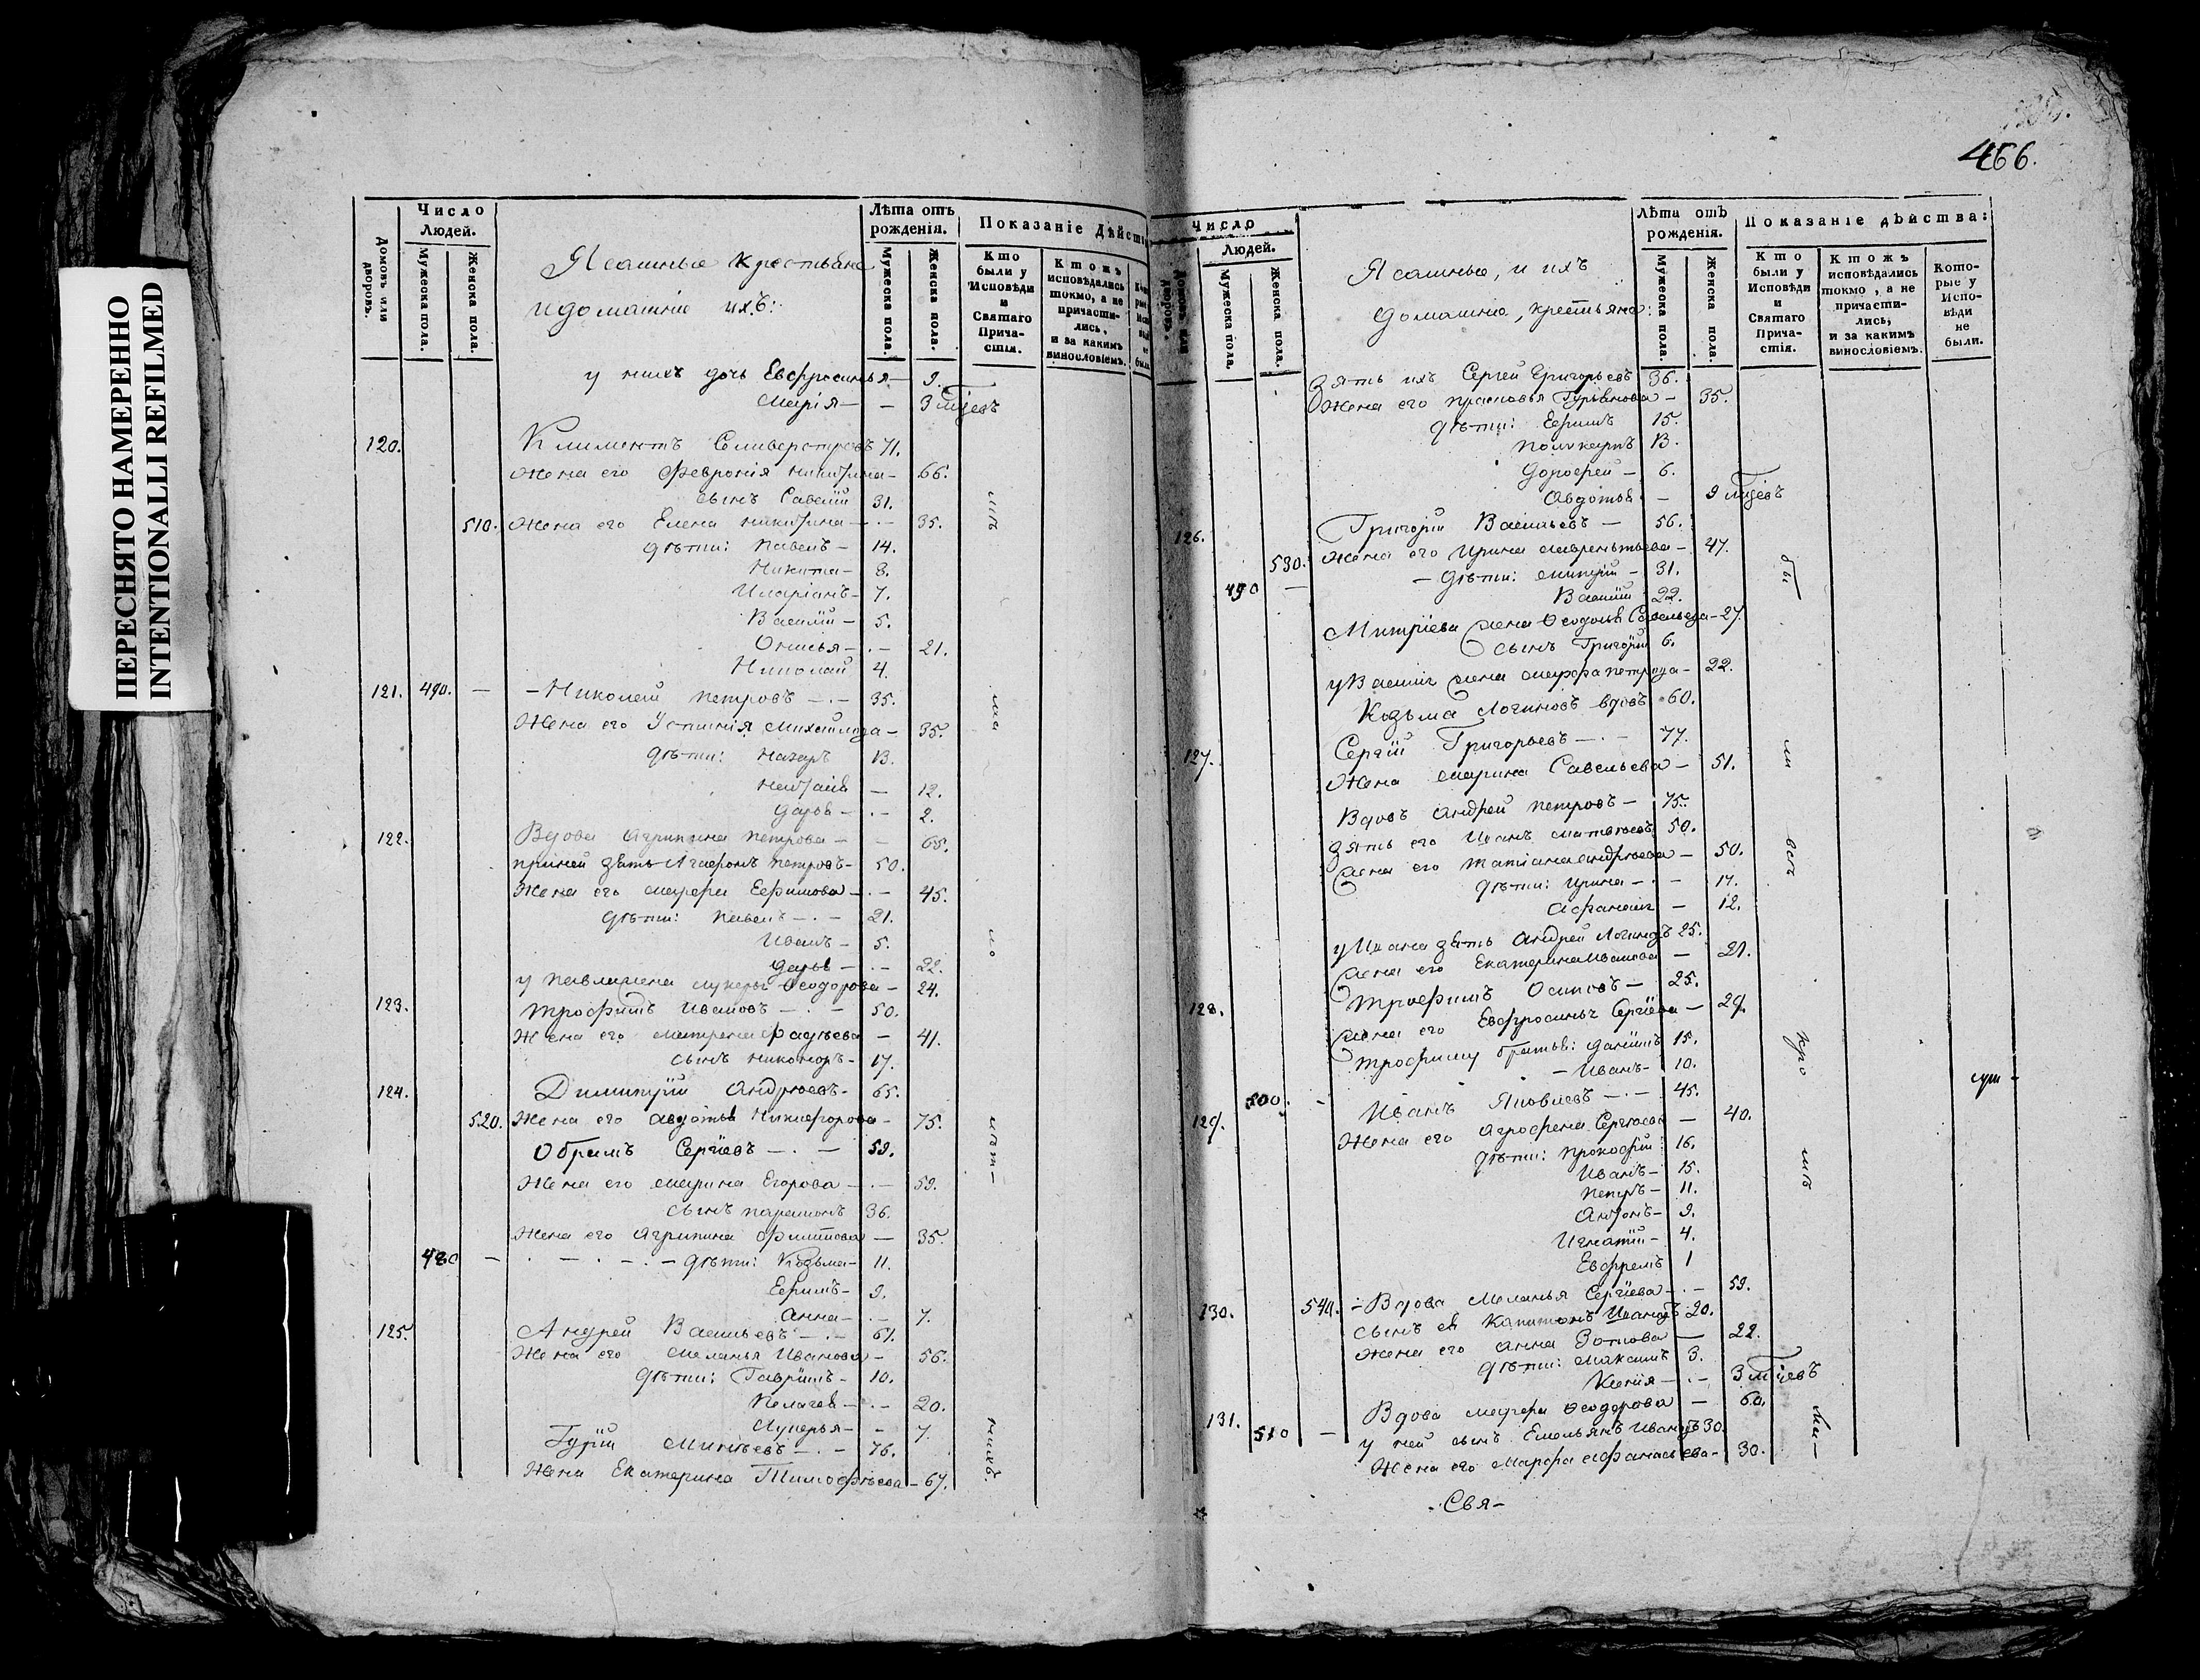 ПЕРЕСНЯТО НАМЕРЕННО
INTENTIONALLI REFILMED
Домовъ или дворовъ.
Число Людей.
Мужеска пола.
Женска пола.
Ясашные крестьяне
и домашніе ихъ:
Лѣта отъ рожденія.
Мужеска пола.
Женска пола.
Показаніе Дѣйств
Кто были у Исповѣди и Святаго Причастія.
Ктожъ исповѣдались токмо, а не причастились, и за какимъ винословіемъ.
у нихъ дочь Евфросинья — 9.
Марія — — 3 мцевъ
120. Климентъ Селиверстровъ 71.
Жена его Феврония Никитина — 66.
сынъ Савелій 31.
510. Жена его Елена Никитина — · — 35.
дѣти: Павелъ — 14.
Никита — 8.
Иларіанъ — 7.
Василій — 5.
Онисья — · — 21.
Николай 4.
121. 490. — — Николай Петровъ — · — 35.
Жена его Устинія Михайлова — 35.
дѣти: Назаръ 13.
— 12.
Дарья — · — 2.
122. Вдова Агрипина Петрова — — 65.
при ней зять Агафонъ Петровъ — 50.
Жена его Марфа Ефимова — · — 45.
дѣти: Павелъ — · — 21.
Иванъ — 5.
Дарья — · — 22.
у Павла жена Лукерья Ѳеодорова — 24.
123. Трофимъ Ивановъ — · — 50.
Жена его Матрена Фадѣева — 41.
сынъ Никоноръ — 17.
124. Димитрій Андреевъ — 65.
520. Жена его Авдотья Никифорова — 75.
Обрамъ Сергѣевъ — · — 59.
Жена его Марина Егорова — · — 59.
сынъ Парамонъ 36.
Жена его Агрипина Филипова — 35.
480 — · — · — · — дѣти: Козьма — 11.
Ефимъ — 9.
Анна — · — 7.
125. Андрей Васильевъ — · — 61.
Жена его Меланья Иванова — 56.
дѣти: Гаврилъ — 10.
Пелагея — · — 20.
Лукерья — — 7.
Гурій — · — 76.
Жена Екатерина Тимофѣева — 67.
466.
Число Людей.
Мужеска пола.
Женска пола.
Ясашные, и ихъ
домашніе, крестьяне:
Лѣта отъ рожденія.
Мужеска пола.
Женска пола.
Показаніе дѣйства:
Кто были у Исповѣди и Святаго Причастія.
Ктожъ исповѣдались токмо, а не причастились, и за какимъ винословіемъ.
Которые у Исповѣди не были.
Зять ихъ Сергей Григорьевъ 36.
Жена его Прасковья Гурьянова — 35.
дѣти: Ефимъ 15.
Поликарпъ 13.
Дорофей — 6.
Авдотья — 9 мцевъ
126. Григорій Васильевъ — 56.
530. Жена его Ирина Лаврентьева — 47.
490 — — дѣти: Митрій — 31.
Василій 22.
Митріева жена Ѳеодосья Савельева — 27.
сынъ Григорій 6.
у Василія жена Марфа Петрова — 22.
Козьма Логиновъ вдовъ 60.
127. Сергій Григорьевъ — · — 77.
Жена Марина Савельева — 51.
Вдовъ Андрей Петровъ — 75.
зять его Иванъ Матвеевъ 50.
жена его Татіана Андреева — 50.
дѣти: Ирина — · — 17.
— 12.
у Ивана зять Андрей Логиновъ 25.
жена его Екатерина Иванова — 21.
128. Трофимъ Осиповъ — 25.
жена его Евфросинья Сергѣева — 29.
Трофиму братья: Данилъ 15.
— Иванъ — 10.
500. 129. Иванъ Яковлевъ — · — 45.
Жена его Агрофена Сергѣева — 40.
дѣти: Прокофій 16.
Иванъ — 15.
Петръ — 11.
Антонъ — 9.
Игнатій — 4.
Евфремъ 1
130. 540. — Вдова Меланья Сергѣева — · — 59.
сынъ ея Капитонъ Ивановъ 20.
Жена его Анна Зотова — 22.
дѣти: Максимъ 3.
Ксенія — · — 3 мцевъ
131. Вдова Марфа Ѳеодорова — 60.
510 — у ней сынъ Емельянъ Ивановъ 30.
Жена его Марфа Афанасьева — 30.
бы
ли
всѣ
Свя-